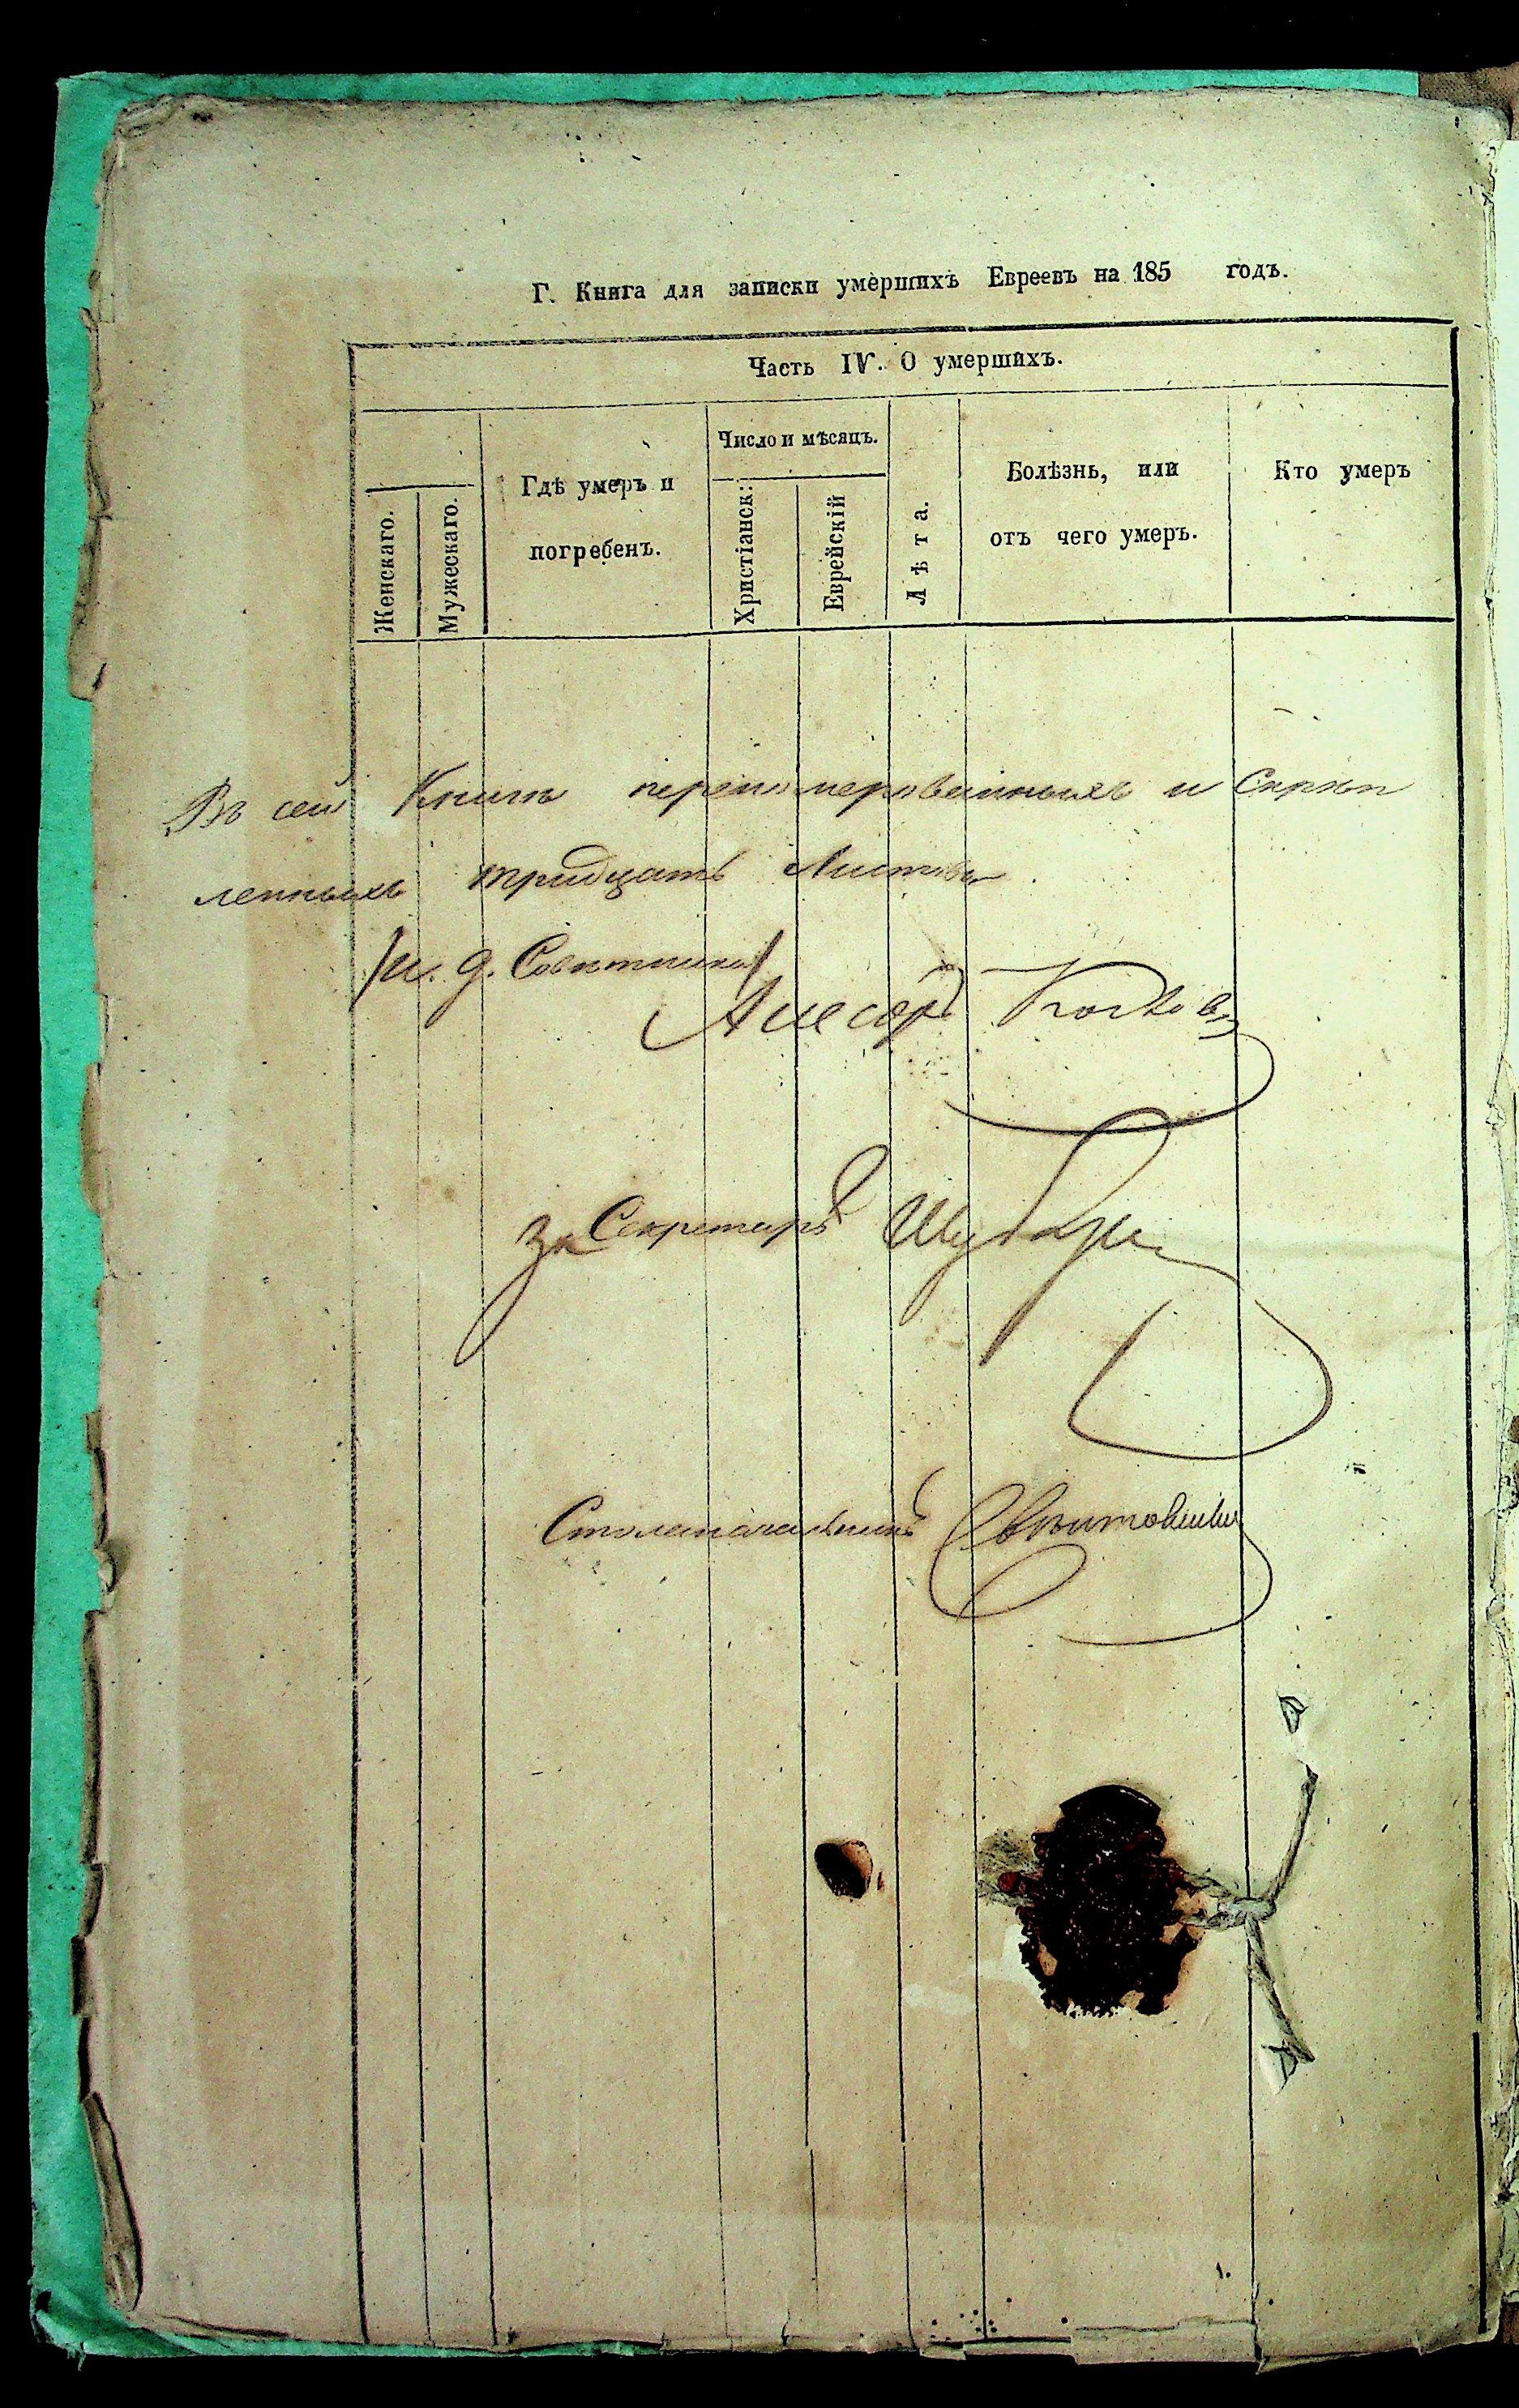 Г. Книга для записки умершихъ Евреевъ на 185 годъ.
Часть IV. О умершихъ.
Женскаго.
Мужескаго.
Гдѣ умеръ и
погребенъ.
Число и мѣсяцъ.
Христіанск:
Еврейскій
Лѣта.
Болѣзнь, или
отъ чего умеръ.
Кто умеръ
Въ сей Книгѣ перенумерованныхъ и Скрѣп
ленныхъ тридцать Листовъ
/и. д. Совѣтника/
Асесоръ
За Секретаръ
Столоначальникъ